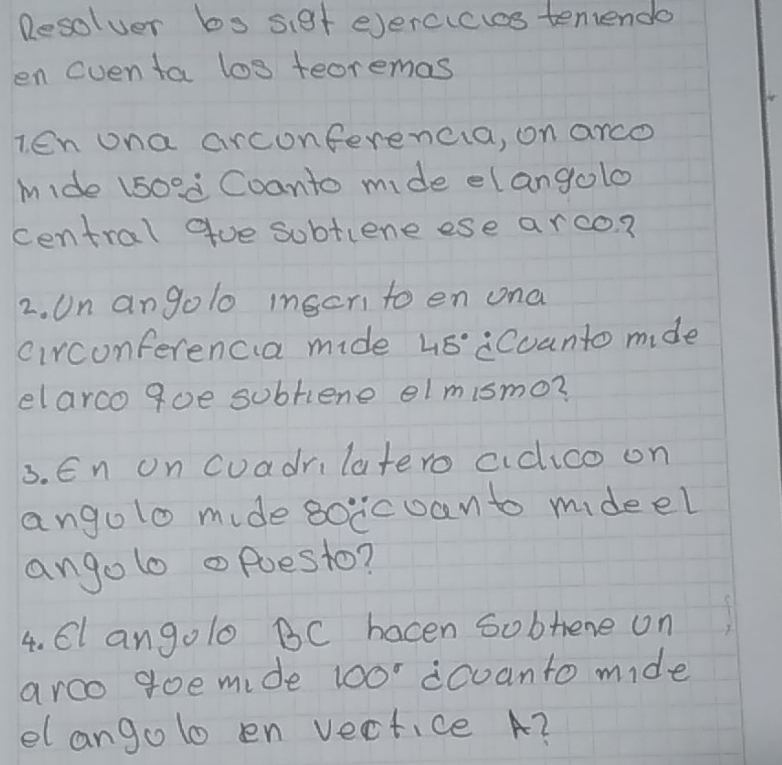 Resolver los sigt ejercicios teniendo
en cuenta los teoremas
1. En una arconferencia, on arco
mide 150° ¿ Coanto mide el angolo
central que subtiene ese arco?
2. Un angolo inscrito en una
circunferencia mide 45° ¿Cuanto mide
el arco qoe subtiene el mismo?
3. En un cuadrilatero ciclico on
angulo mide 80° ¿cuanto mide el
angolo opuesto?
4. El angolo BC hacen subtiene un
arco qoe mide 100° ¿cuanto mide
el angolo en vertice A?